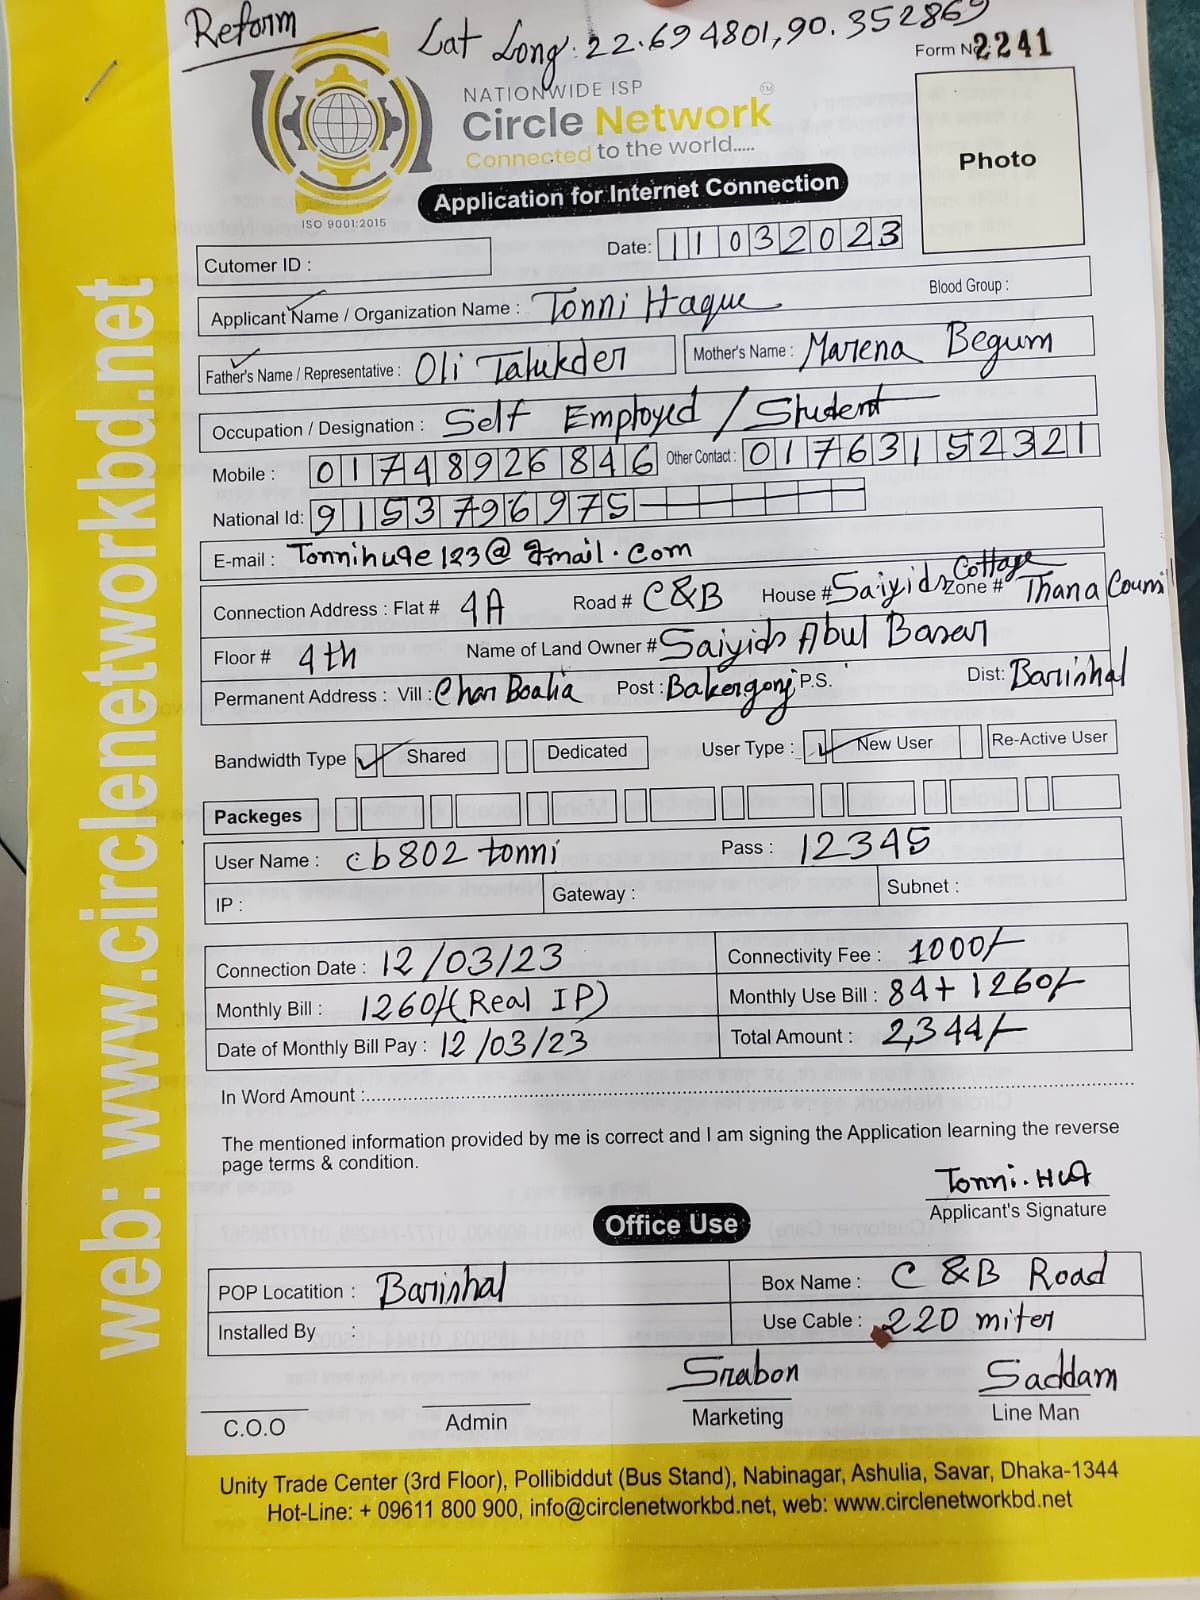 Reform
Lat Long: 22.694801,90.352869
Form No. 2241
NATIONWIDE ISP
Circle Network TM
Connected to the world.....
ISO 9001:2015
Application for Internet Connection
Photo
Cutomer ID :
Date: 11032023
Applicant Name / Organization Name : Tonni Haque
Blood Group :
Father's Name / Representative : Oli Talukder
Mother's Name : Marena Begum
Occupation / Designation : Self Employed / Student
Mobile : 01748926846 Other Contact : 01763152321
National Id: 9153796975
E-mail : Tonnihuqe123@gmail.com
Connection Address : Flat # 4A Road # C&B House # Saiyids Cottage Zone # Thana Council
Floor # 4th Name of Land Owner # Saiyids Abul Basar
Permanent Address : Vill : Char Boalia Post : Bakergonj P.S. Dist: Barishal
Bandwidth Type Shared Dedicated User Type : New User Re-Active User
Packeges
User Name : cb802 tonni Pass : 12345
IP : Gateway : Subnet :
Connection Date : 12/03/23 Connectivity Fee : 1000/-
Monthly Bill : 1260/-(Real IP) Monthly Use Bill : 84+1260/-
Date of Monthly Bill Pay : 12/03/23 Total Amount : 2,344/-
In Word Amount :
The mentioned information provided by me is correct and I am signing the Application learning the reverse
page terms & condition.
Tonni.Huq
Applicant's Signature
Office Use
POP Locatition : Barishal Box Name : C &B Road
Installed By : Use Cable : 220 miter
Srabon Saddam
C.O.O Admin Marketing Line Man
Unity Trade Center (3rd Floor), Pollibiddut (Bus Stand), Nabinagar, Ashulia, Savar, Dhaka-1344
Hot-Line: + 09611 800 900, info@circlenetworkbd.net, web: www.circlenetworkbd.net
web: www.circlenetworkbd.net